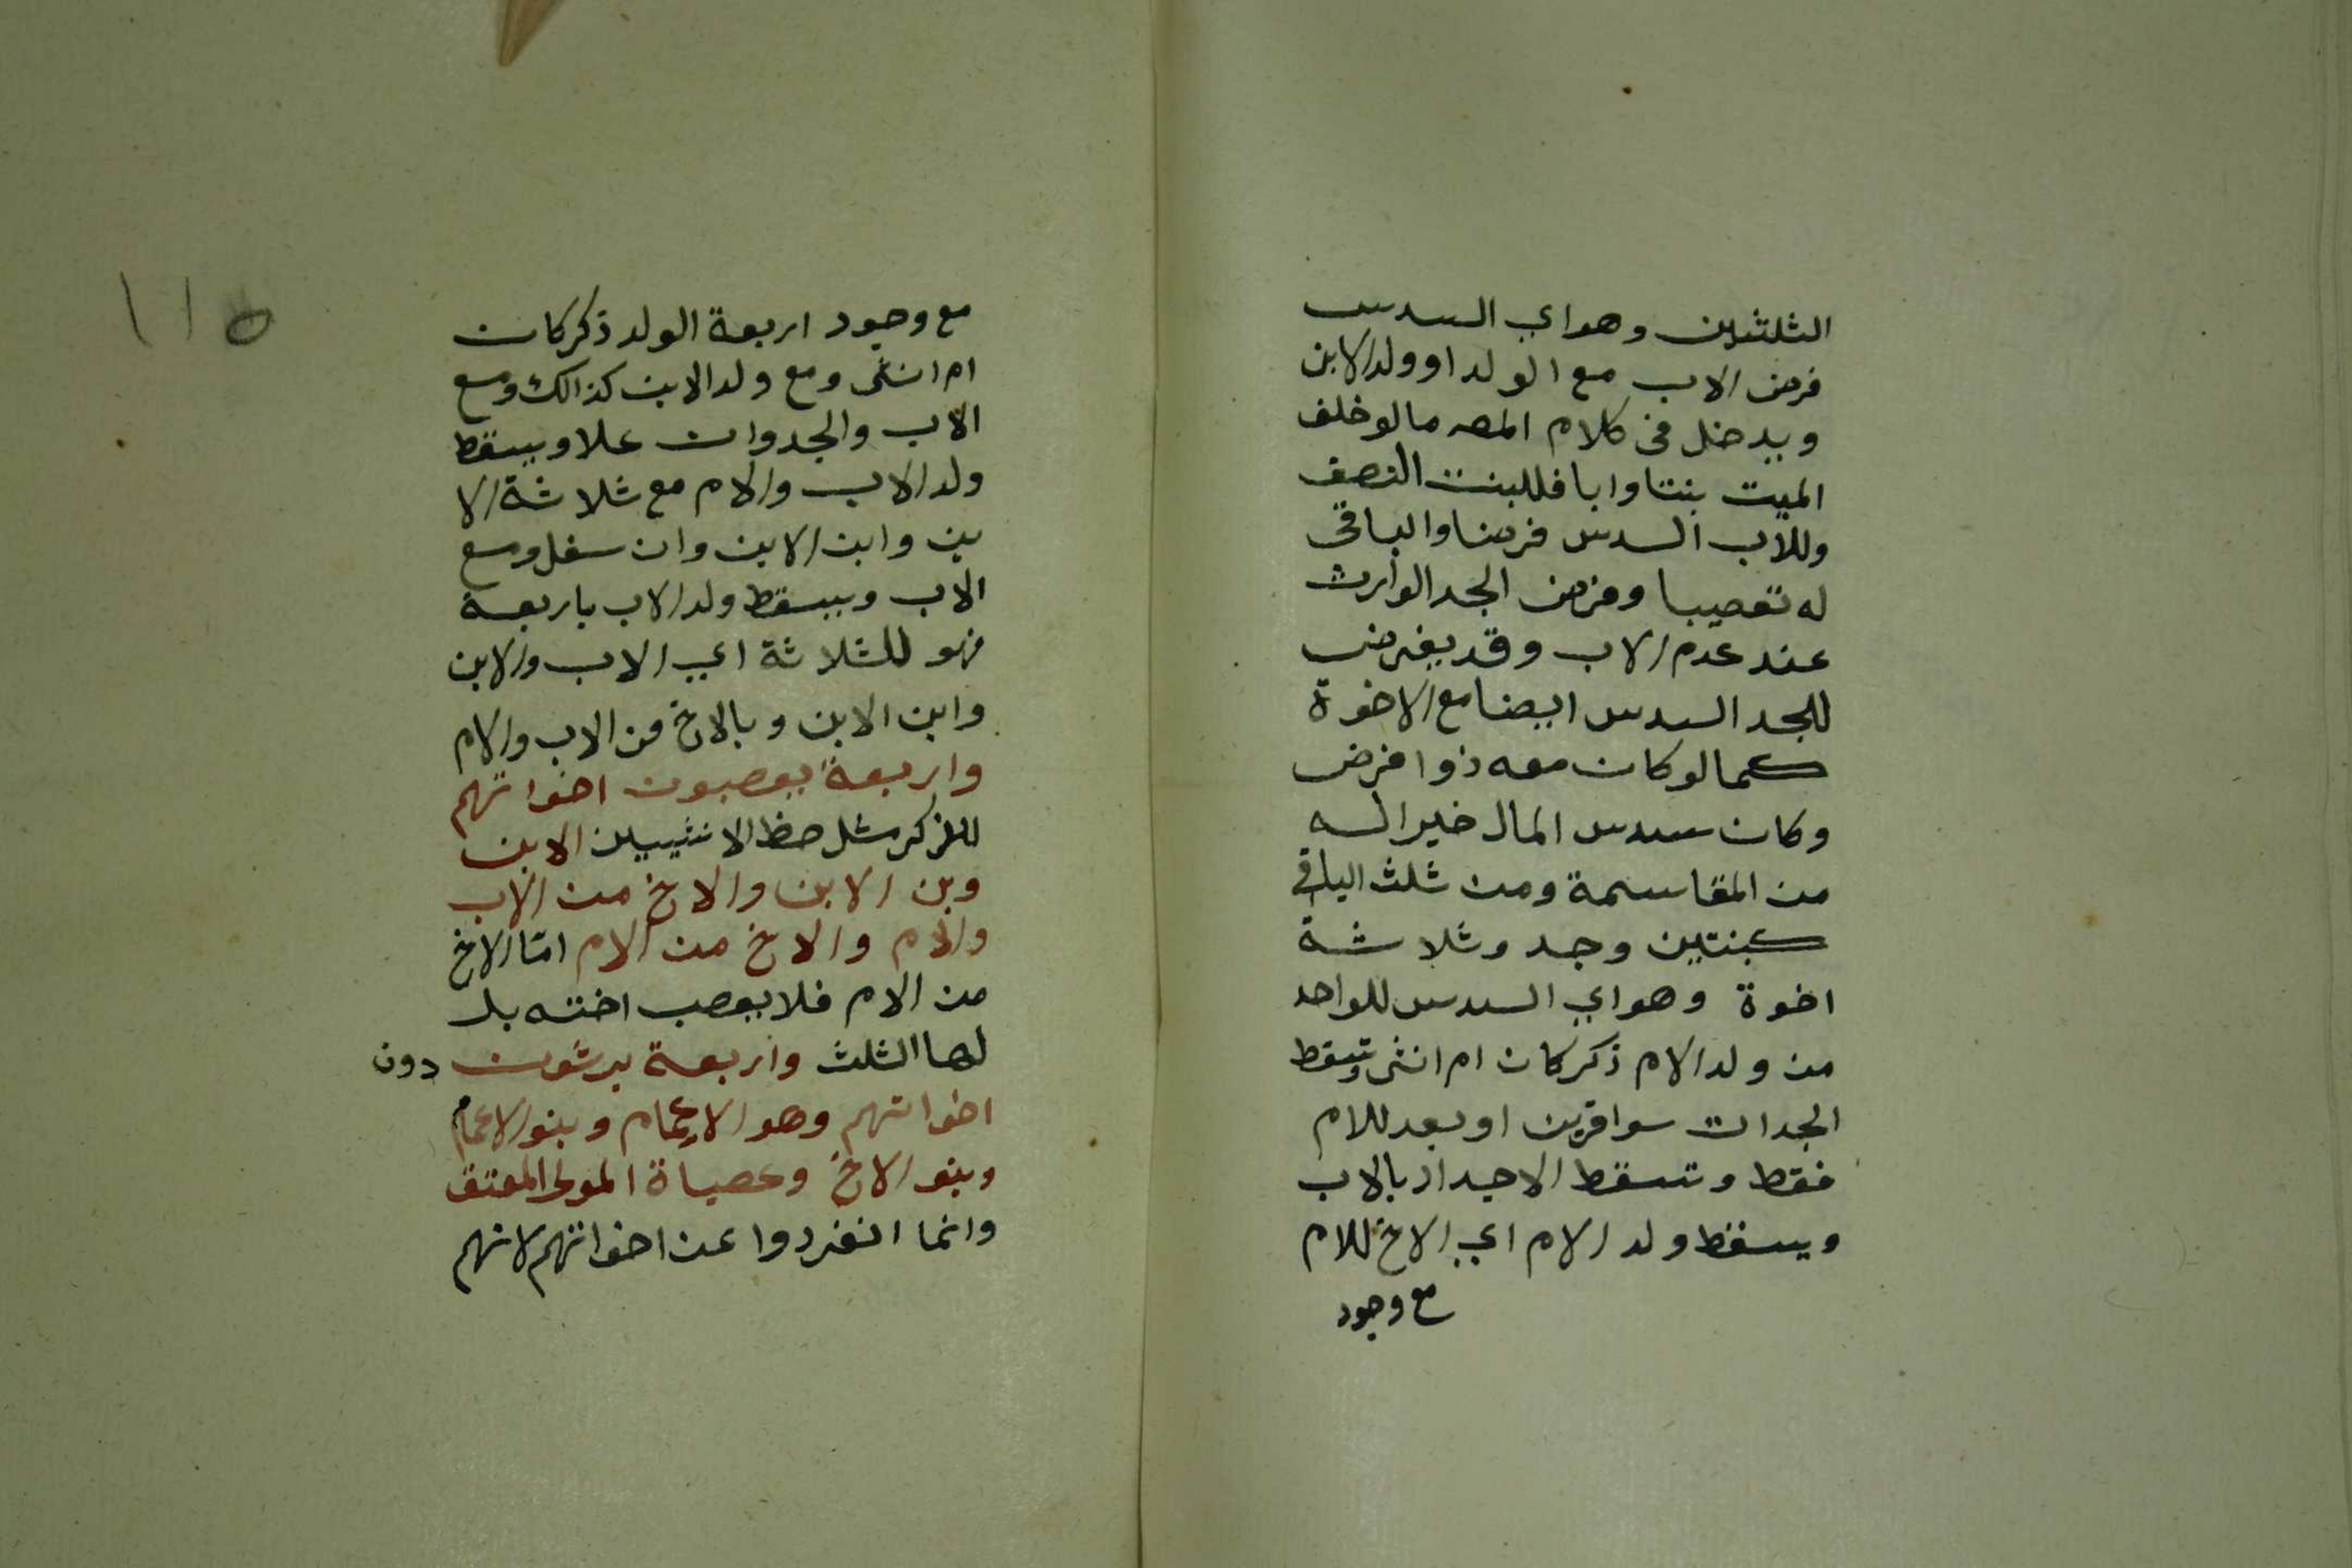 الثلثين وهو اي السدس
فرض الاب مع الولد او ولد الابن
ويدخل في كلام المصـ ما لو خلف
الميت بنتا وابا فللبنت النصف
وللاب السدس فرضا والباقي
له تعصيبا وفرض الجد الوارث
عند عدم الاب وقد يفرض
للجد السدس ايضا مع الاخوة
كما لو كان معه ذوا فرض
وكان سدس المال خير اله
من المقاسمة ومن ثلث الباقي
كبنتين وجد وثلاثة
اخوة وهو اي السدس للواحد
من ولد الام ذكر كان ام انثى وتسقط
الجدات سوا قربن او بعد للام
فقط وتسقط الاجداد بالاب
ويسقط ولد الام اي الاخ للام
مع وجود
١١٥
مع وجود اربعة الولد ذكر كان
ام انثى ومع ولد الابن كذالك ومع
الاب والجد وان علا ويسقط
ولد الاب والام مع ثلاثة الا
بن وابن الابن وان سفل ومع
الاب ويسقط ولد الاب باربعة
فهو للثلاثة اي الاب والابن
وابن الابن وبالاخ من الاب والام
واربعة يعصبون اخواتهم
للذكر مثل حظ الانثيين الابن
وبن الابن والاخ من الاب
والام والاخ من الام امّا الاخ
من الام فلا يعصب اخته بل
لها الثلث واربعة يرثون دون
اخواتهم وهو الاعمام وبنو الاعمام
وبنو الاخ وعصباة المولى المعتق
وانما انفردوا عن اخواتهم لانهم